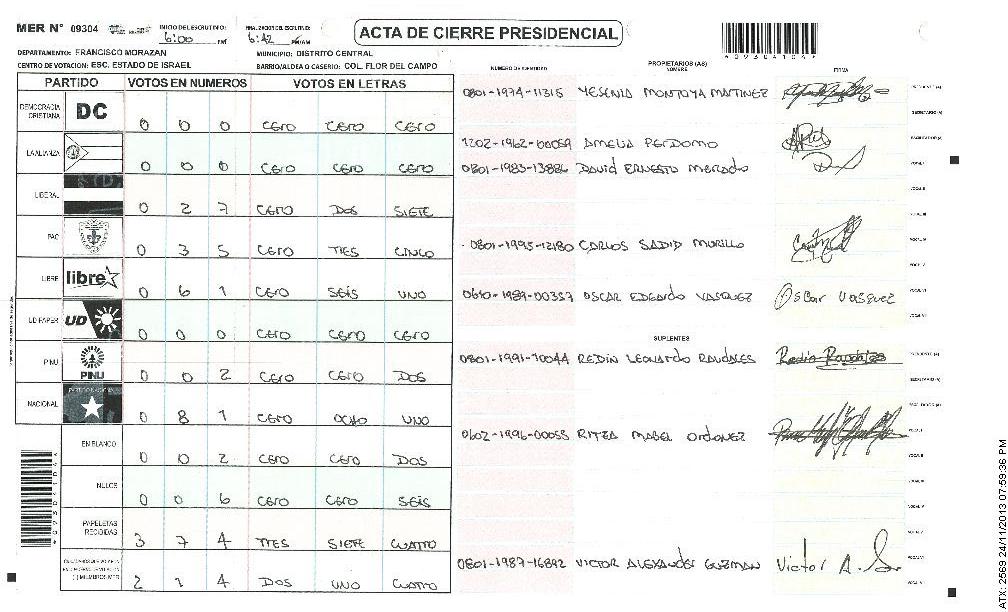 MER N° 09304 INICIO DEL ESCRUTINIO: 6:00 PM FINALIZACION DEL ESCRUTINIO: 6:42 PM/AM
ACTA DE CIERRE PRESIDENCIAL
DEPARTAMENTO: FRANCISCO MORAZAN MUNICIPIO: DISTRITO CENTRAL
CENTRO DE VOTACION: ESC. ESTADO DE ISRAEL BARRIO/ALDEA O CASERIO: COL. FLOR DEL CAMPO
PARTIDO VOTOS EN NUMEROS VOTOS EN LETRAS
DEMOCRACIA CRISTIANA DC 0 0 0 CERO CERO CERO
LA ALIANZA 0 0 0 CERO CERO CERO
LIBERAL 0 2 7 CERO DOS SIETE
PAC 0 3 5 CERO TRES CINCO
LIBRE libre 0 6 1 CERO SEIS UNO
UD FAPER UD 0 0 0 CERO CERO CERO
PINU PINU 0 0 2 CERO CERO DOS
NACIONAL 0 8 1 CERO OCHO UNO
EN BLANCO 0 0 2 CERO CERO DOS
NULOS 0 0 6 CERO CERO SEIS
PAPELETAS RECIBIDAS 3 7 4 TRES SIETE CUATRO
2 1 4 DOS UNO CUATRO
NUMERO DE IDENTIDAD PROPIETARIOS (AS) NOMBRE FIRMA
0801-1974-11315 YESENIA MONTOYA MARTINEZ
1202-1962-00059 AMELIA PERDOMO
0801-1983-13886 DAVID ERNESTO MERCADO
0801-1995-12180 CARLOS SADID MURILLO
0610-1989-00357 OSCAR EDGARDO VASQUEZ Oscar Vasquez
SUPLENTES
0801-1991-10044 REDIN LEONARDO RAUDALES
0602-1996-00055 RITZA MABEL ORDOÑEZ
0801-1987-16892 VICTOR ALEXANDER GUZMAN Victor A.
ATX: 2569 24/11/2013 07:59:36 PM